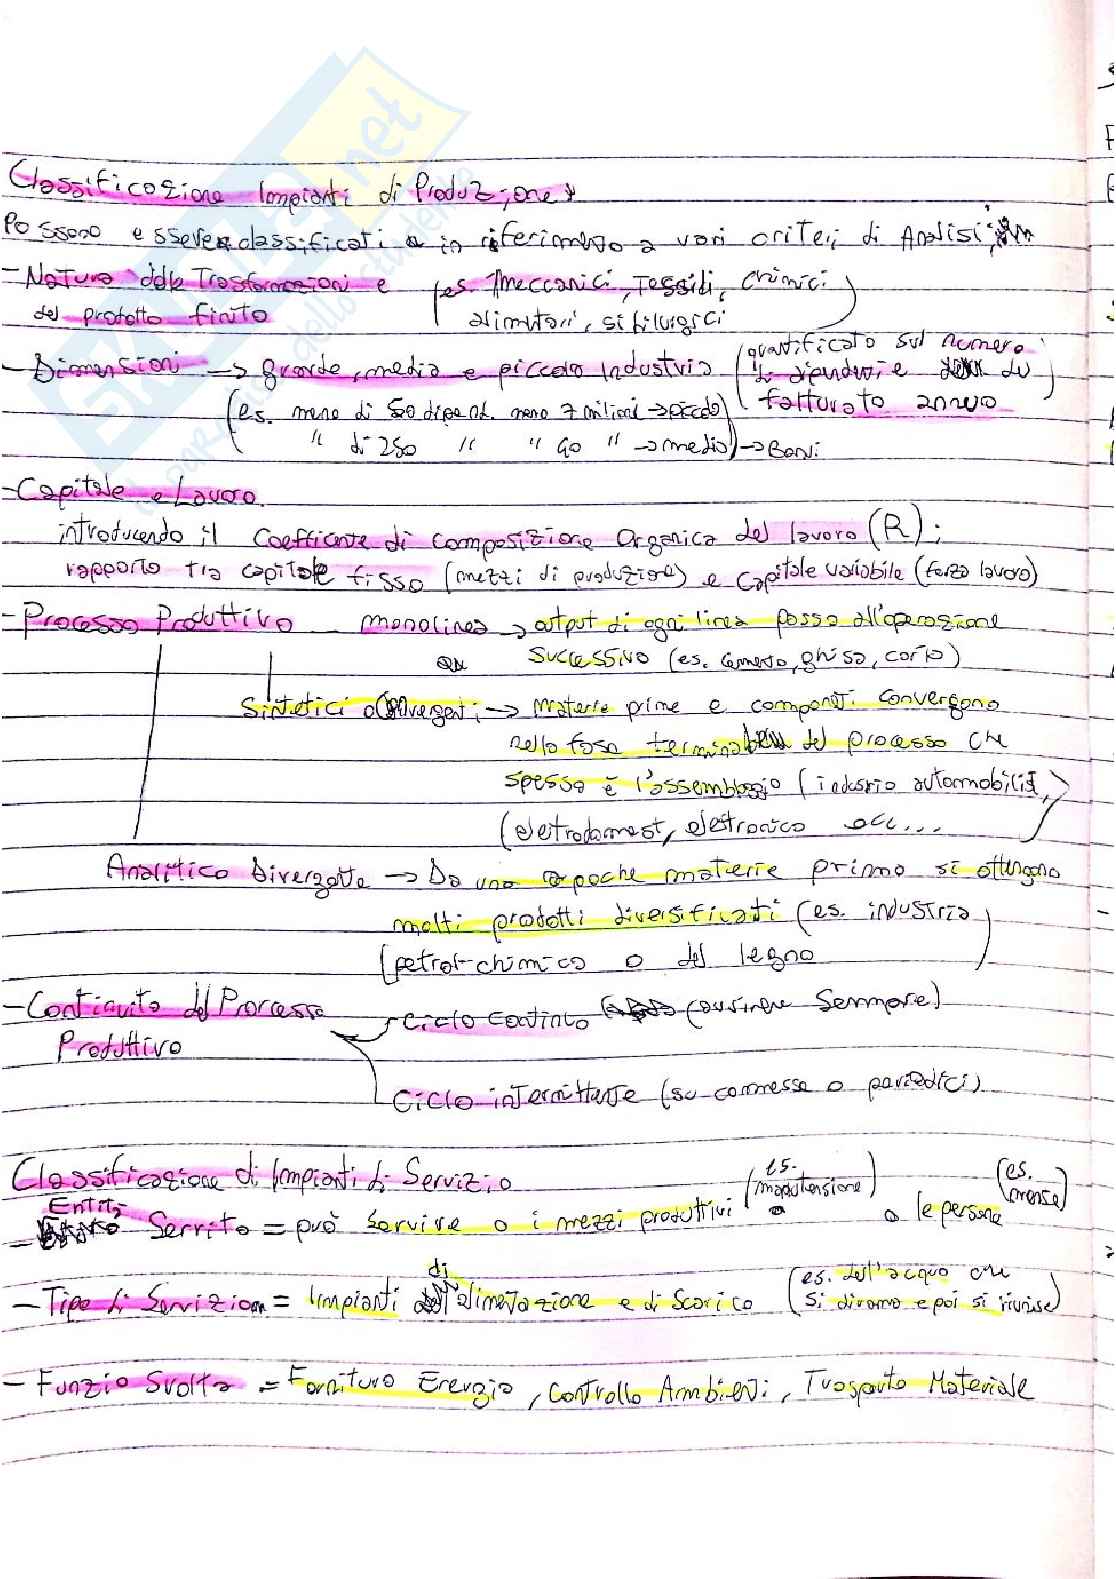 Classificazione Impianti di Produzione
Possono essere classificati in riferimento a vari criteri di Analisi;
- Natura delle Trasformazioni e (es. Meccanici, Tessili, chimici
del prodotto finito alimentari, siderurgici)
- Dimensioni → grande, media e piccola Industria (quantificato sul numero
di dipendenti e del
fatturato annuo)
(es. meno di 50 dipend. meno 7 milioni → piccola
" di 250 " " 40 " → media) →
- Capitale e Lavoro
introducendo il Coefficiente di composizione Organica del lavoro (R);
rapporto tra capitale fisso (mezzi di produzione) e Capitale variabile (forza lavoro)
- Processo Produttivo monolinea → output di ogni linea passa all'operazione
successiva (es. cemento, ghisa, carta)
Sintetici o Convergenti → Materie prime e componenti convergono
nella fase terminale del processo che
spesso è l'assemblaggio (industria automobilist,
(elettrodomest, elettronica ecc...
Analitico Divergente → Da una o poche materie prime si ottengono
molti prodotti diversificati (es. industria
petrol-chimica o del legno
- Continuità del Processo Ciclo continuo (sempre)
Produttivo
Ciclo intermittente (su commessa o periodici)
Classificazione di Impianti di Servizio (es. manutenzione) (es. mense)
- Entità Servita = può servire o i mezzi produttivi o le persone
- Tipo di Servizio = Impianti di alimentazione e di Scarico (es. dell'acqua che
si dirama e poi si riunisce)
- Funzio Svolta = Fornitura Energia, Controllo Ambienti, Trasporto Materiale